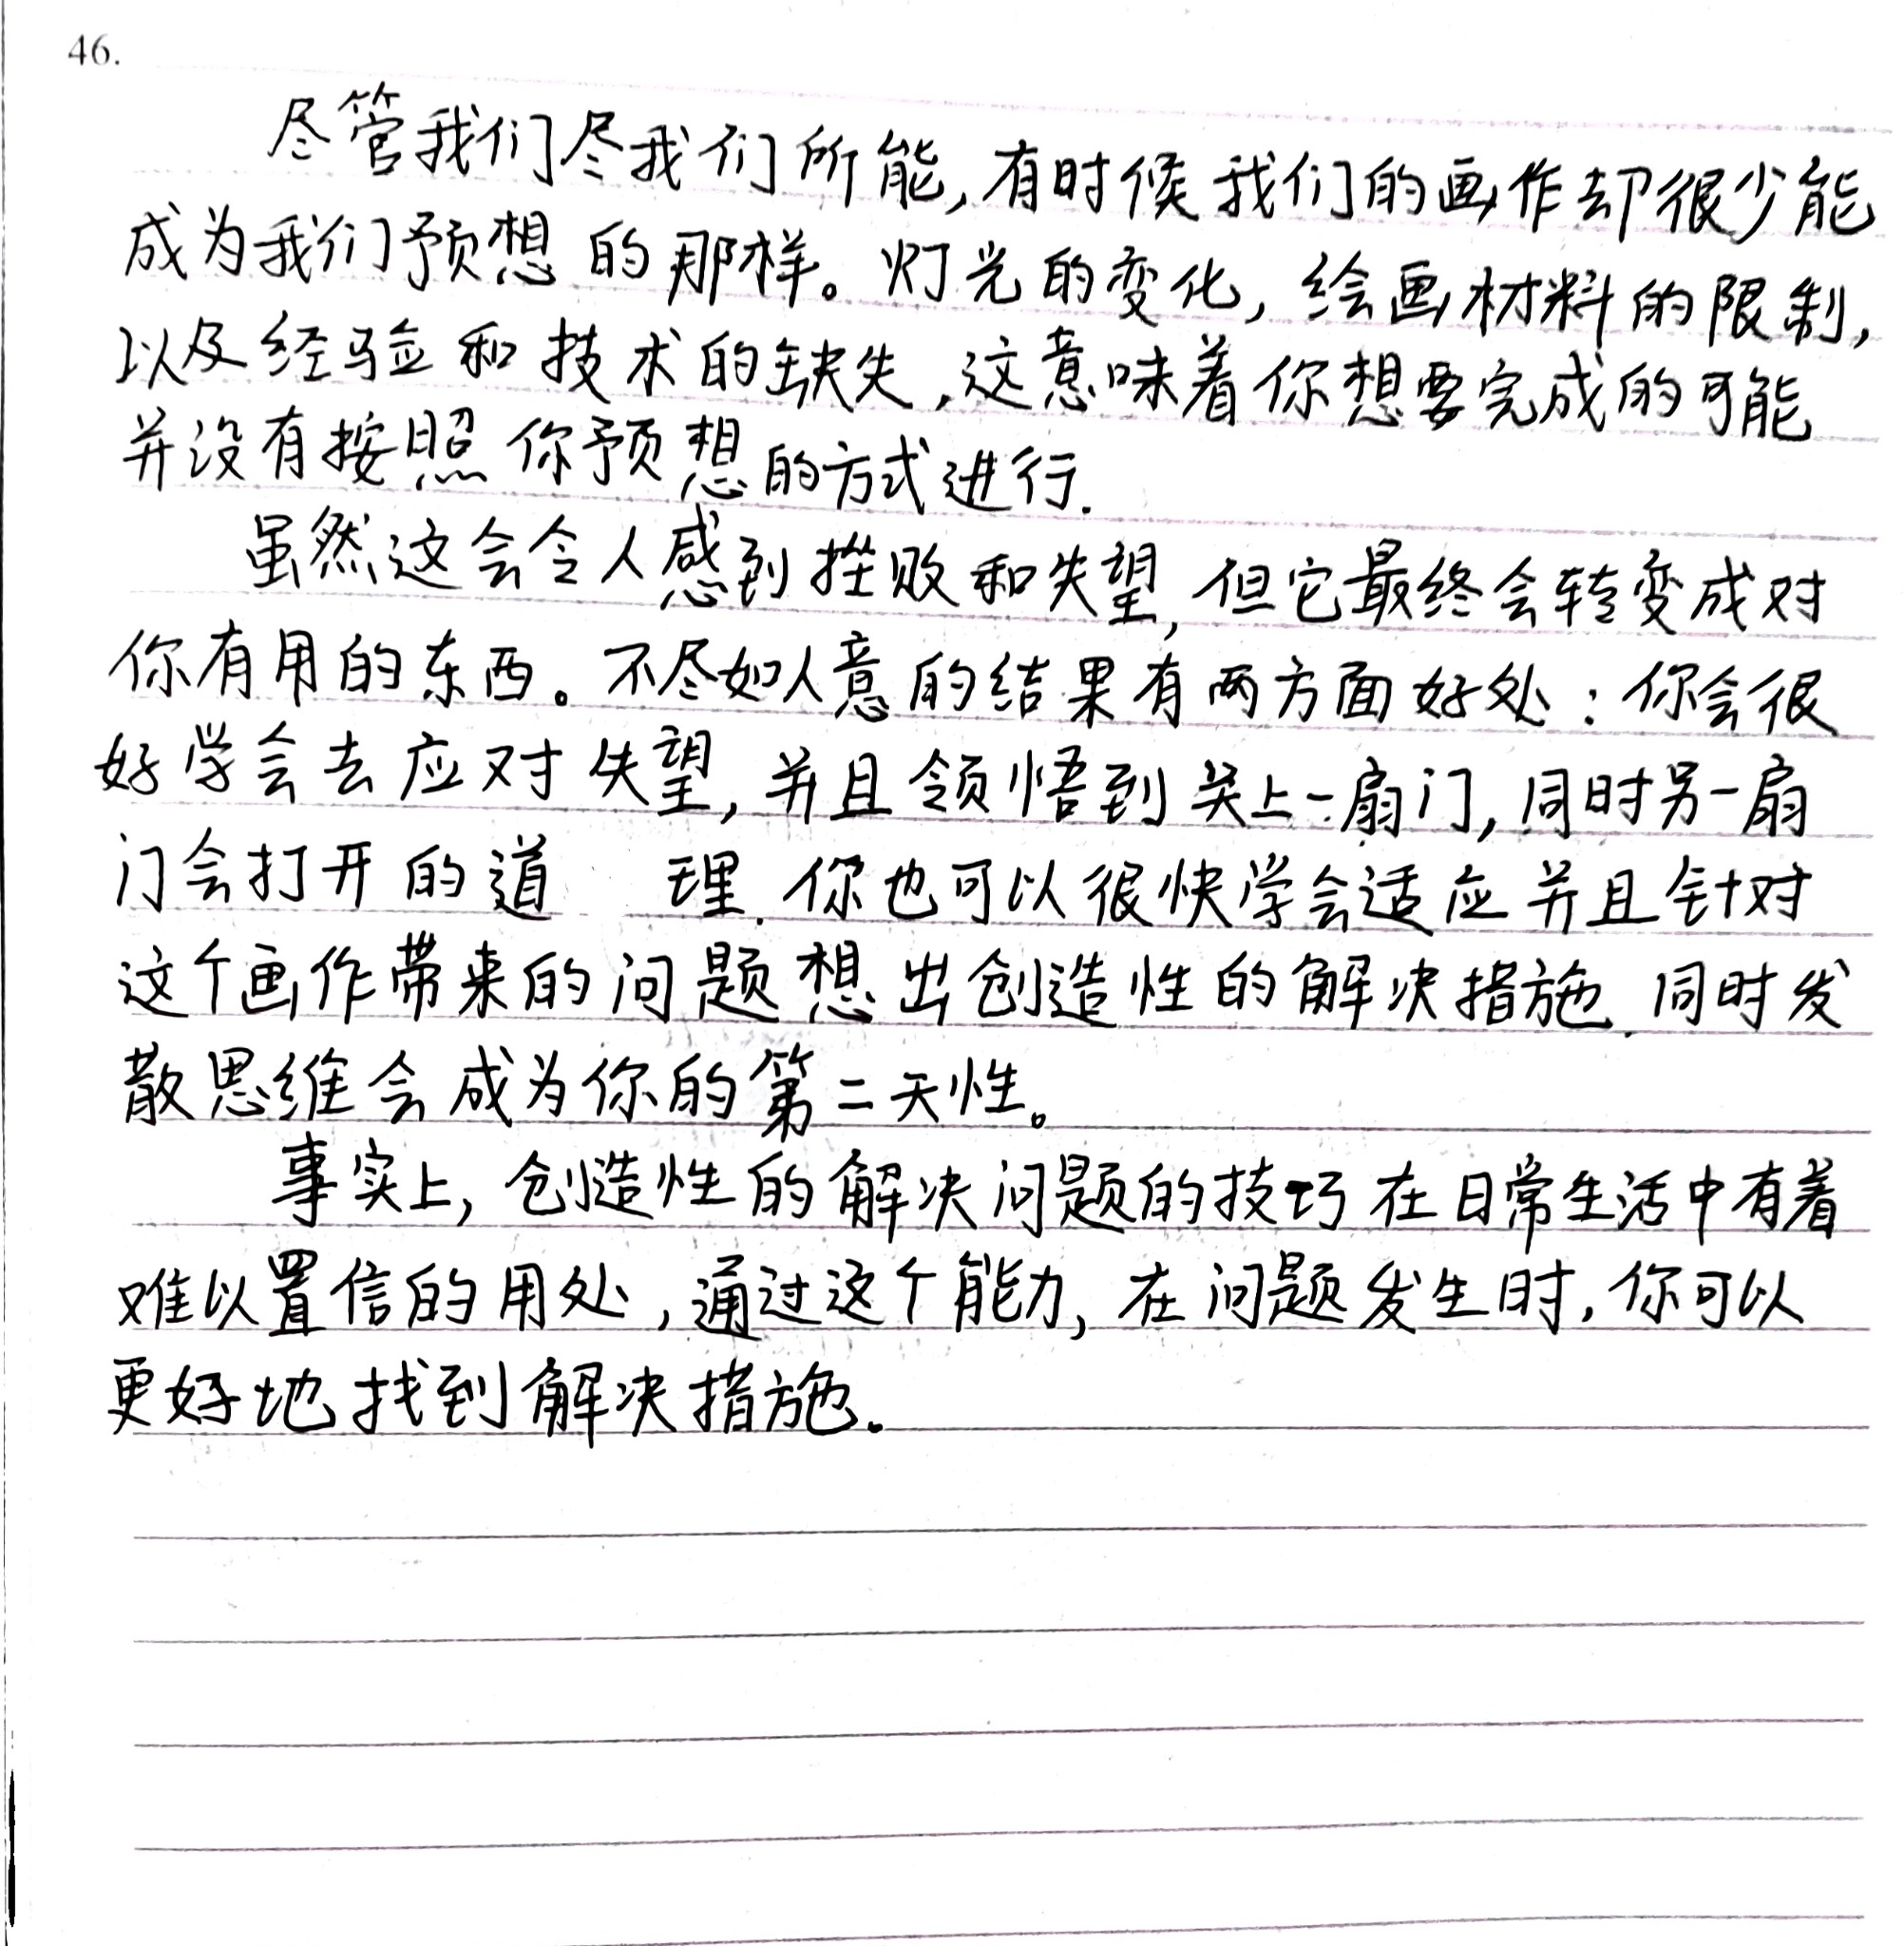 46.
尽管我们尽我们所能,有时候我们的画作却很少能
成为我们预想的那样。灯光的变化,绘画材料的限制,
以及经验和技术的缺失,这意味着你想要完成的可能
并没有按照你预想的方式进行.
虽然这会令人感到挫败和失望,但它最终会转变成对
你有用的东西。不尽如人意的结果有两方面好处:你会很
好学会去应对失望,并且领悟到关上一扇门,同时另一扇
门会打开的道 理.你也可以很快学会适应并且针对
这个画作带来的问题想出创造性的解决措施.同时发
散思维会成为你的第二天性。
事实上,创造性的解决问题的技巧在日常生活中有着
难以置信的用处,通过这个能力,在问题发生时,你可以
更好地找到解决措施。